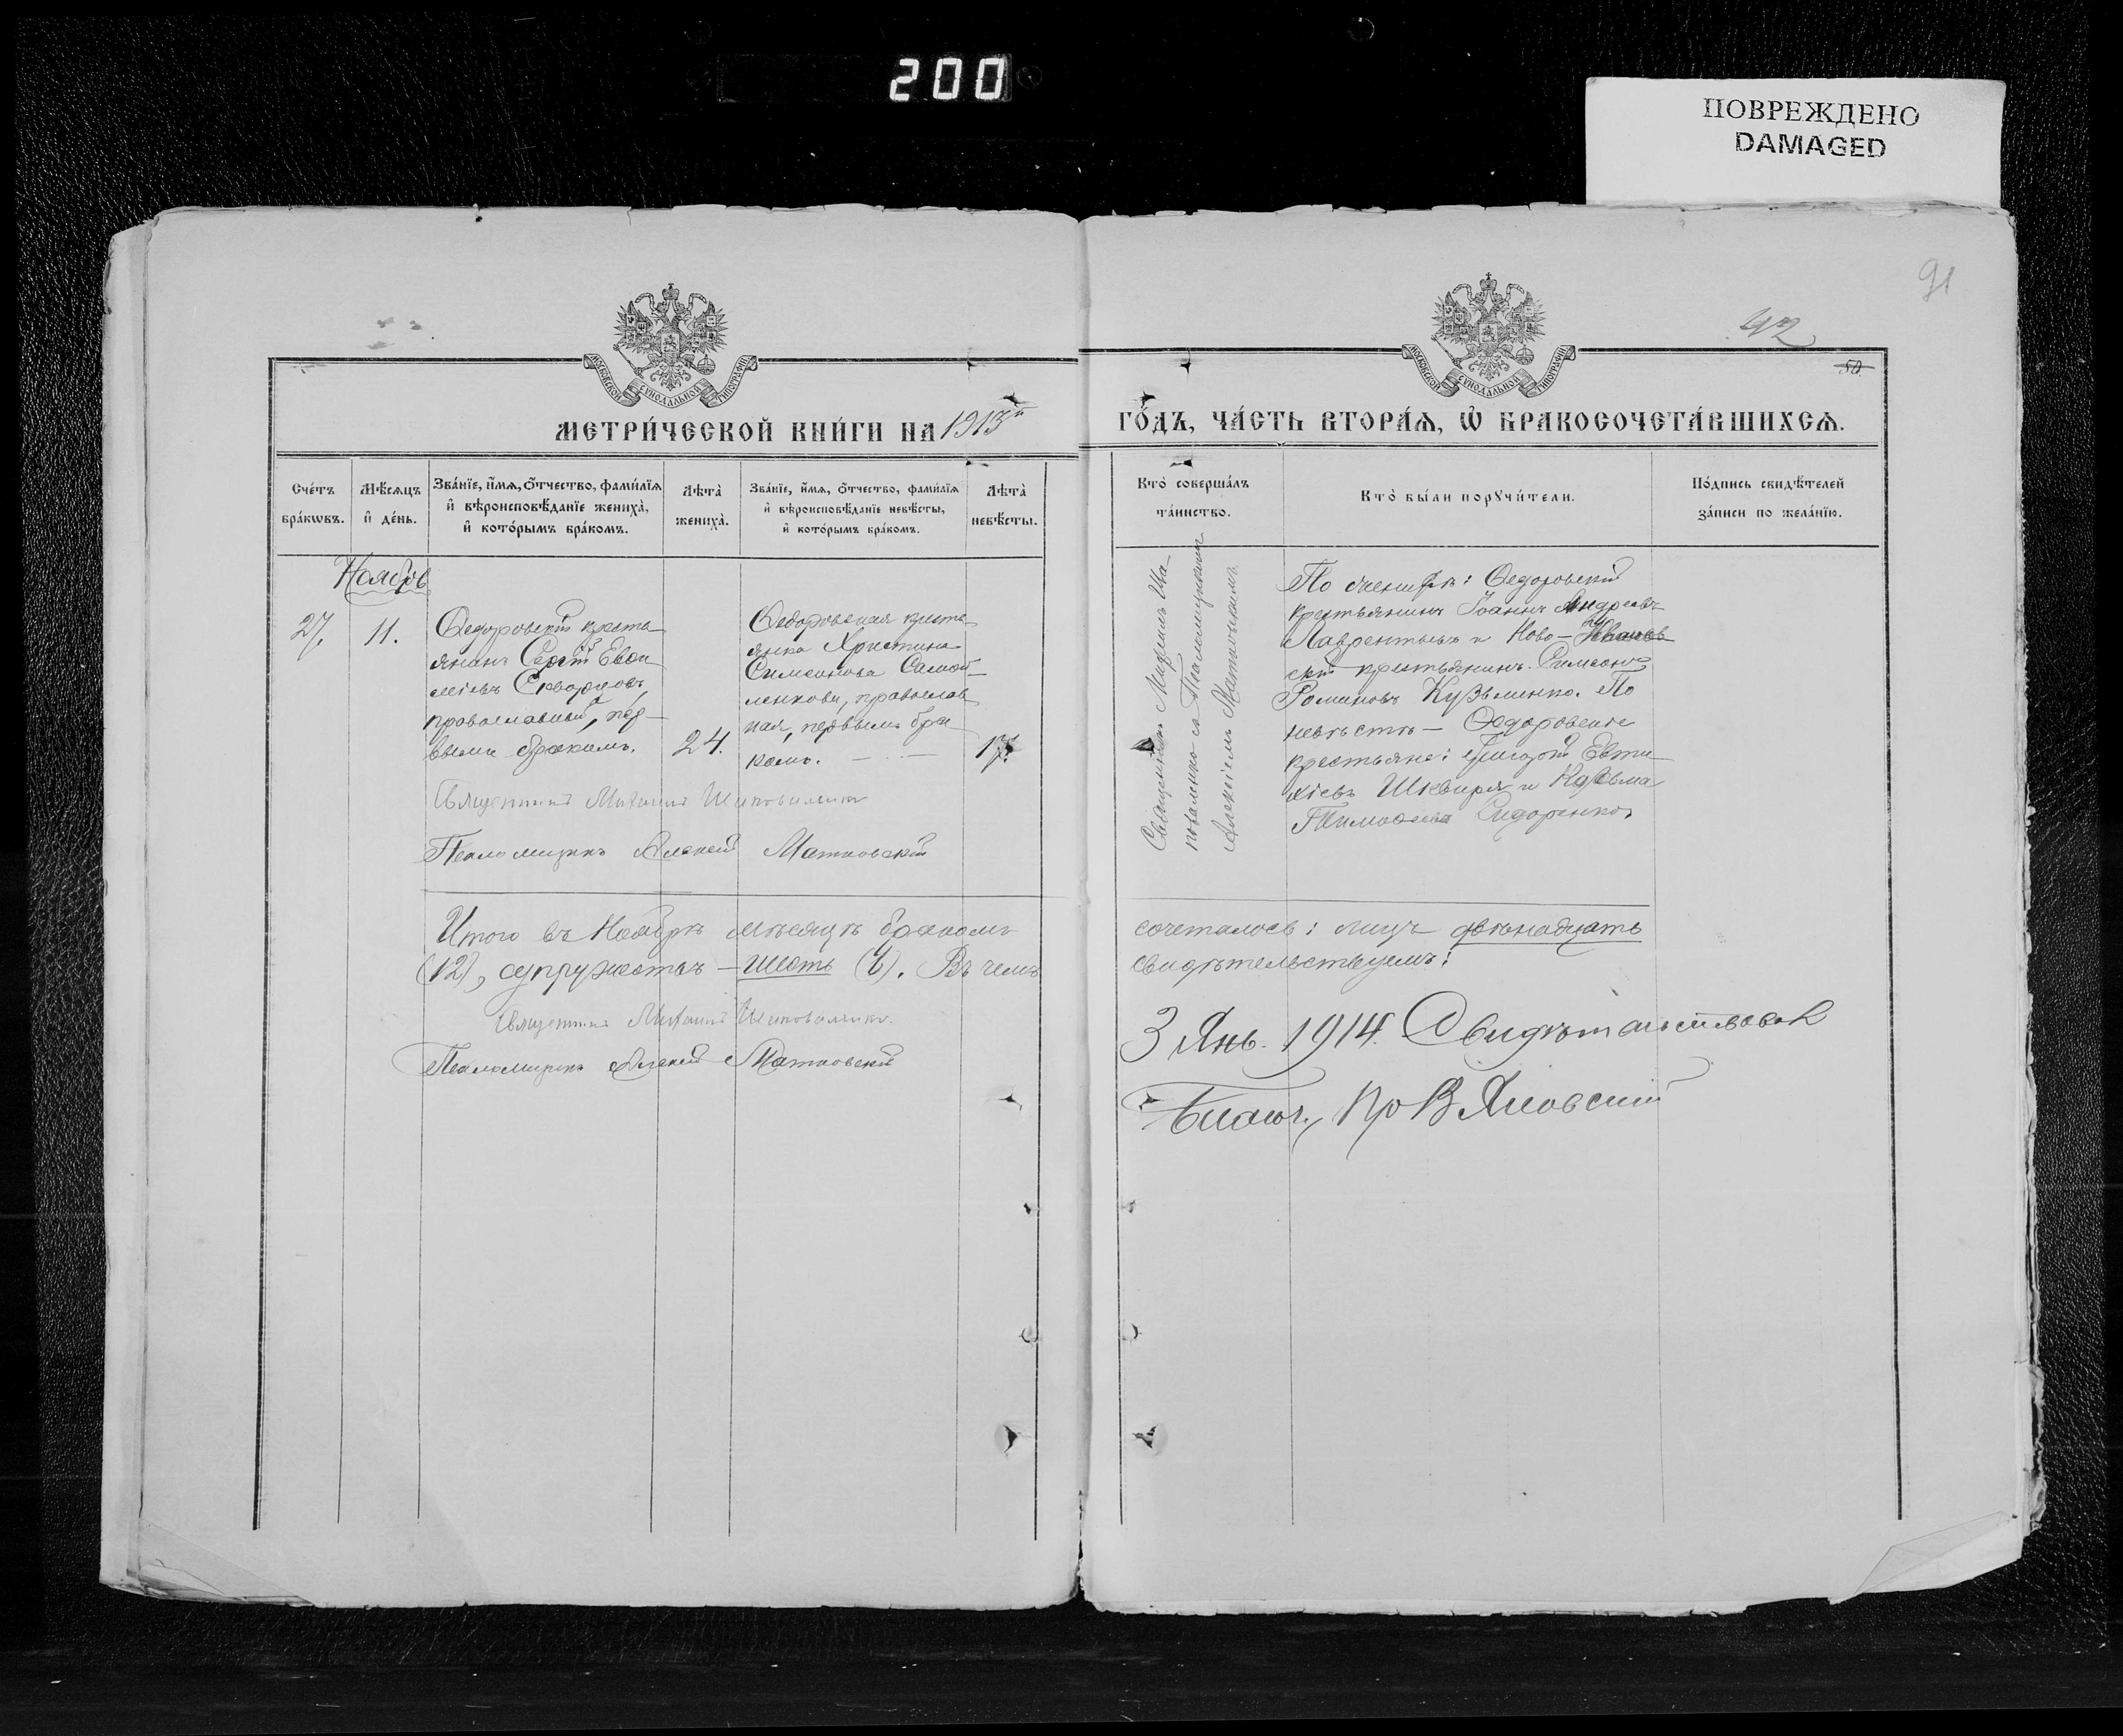 200
ПОВРЕЖДЕНО
DAMAGED
91
42
50
МОСКОВСКОЙ СѴНОДАЛЬНОЙ ТИПОГРАФІИ
МОСКОВСКОЙ СѴНОДАЛЬНОЙ ТИПОГРАФІИ
МЕТРИ́ЧЕСКОЙ КНИ́ГИ НА 1913й
ГО́ДЪ, ЧА́СТЬ ВТОРА́Ѧ, Ѡ҆ БРАКОСОЧЕТА́ВШИХСѦ.
Сче́тъ
бра́кѡвъ.
Мѣ́сѧцъ
и҆ де́нь.
Зва́нїе, и҆́мѧ, ѻ҆́тчество, фами́лїѧ
и҆ вѣроисповѣ́данїе жениха̀,
и҆ кото́рымъ бра́комъ.
Лѣта̀
жениха̀.
Зва́нїе, и҆́мѧ, ѻ҆́тчество, фами́лїѧ
и҆ вѣроисповѣ́данїе невѣ́сты,
и҆ кото́рымъ бра́комъ.
Лѣта̀
невѣ́сты.
Кто̀ соверша́лъ
та́инство.
Кто̀ бы́ли порꙋчи́тели.
По́дпись свидѣ́телей
за́писи по жела́нїю.
Ноябрь
27.
11.
Ѳедоровскій кресть-
янинъ Сергій Евѳи-
міевъ Скворцовъ,
православный, пер-
вымъ бракомъ.
24.
Ѳедоровская кресть-
янка Христина
Симеонова Самой-
ленкова, православ
ная, первымъ бра
комъ.
17.
Священникъ Михаилъ Ша-
поваленко съ Псаломщикомъ
Алексіемъ Матковскимъ
По женихѣ: Ѳедоровскій
крестьянинъ Іоаннъ Андреевъ
Лаврентьевъ и Ново-Иванов
скій крестьянинъ Симеонъ
Романовъ Кузьменко. По
невѣстѣ – Ѳедоровскіе
крестьяне: Григорій Евти-
хіевъ Шквиря и Козьма
Тимоѳеевъ Сидоренко.
Священникъ Михаилъ Шаповаленко
Псаломщикъ Алексій Матковскій
Итого въ Ноябрѣ мѣсяцѣ бракомъ
сочеталось: лицъ двѣнадцать
(12), супружествъ – шесть (6). Въ чемъ
свидѣтельствуемъ:
Священникъ Михаилъ Шаповаленко.
Псаломщикъ Алексій Матковскій
3 Янв. 1914. Свидѣтельствовал
Благоч., Пр В Яновский